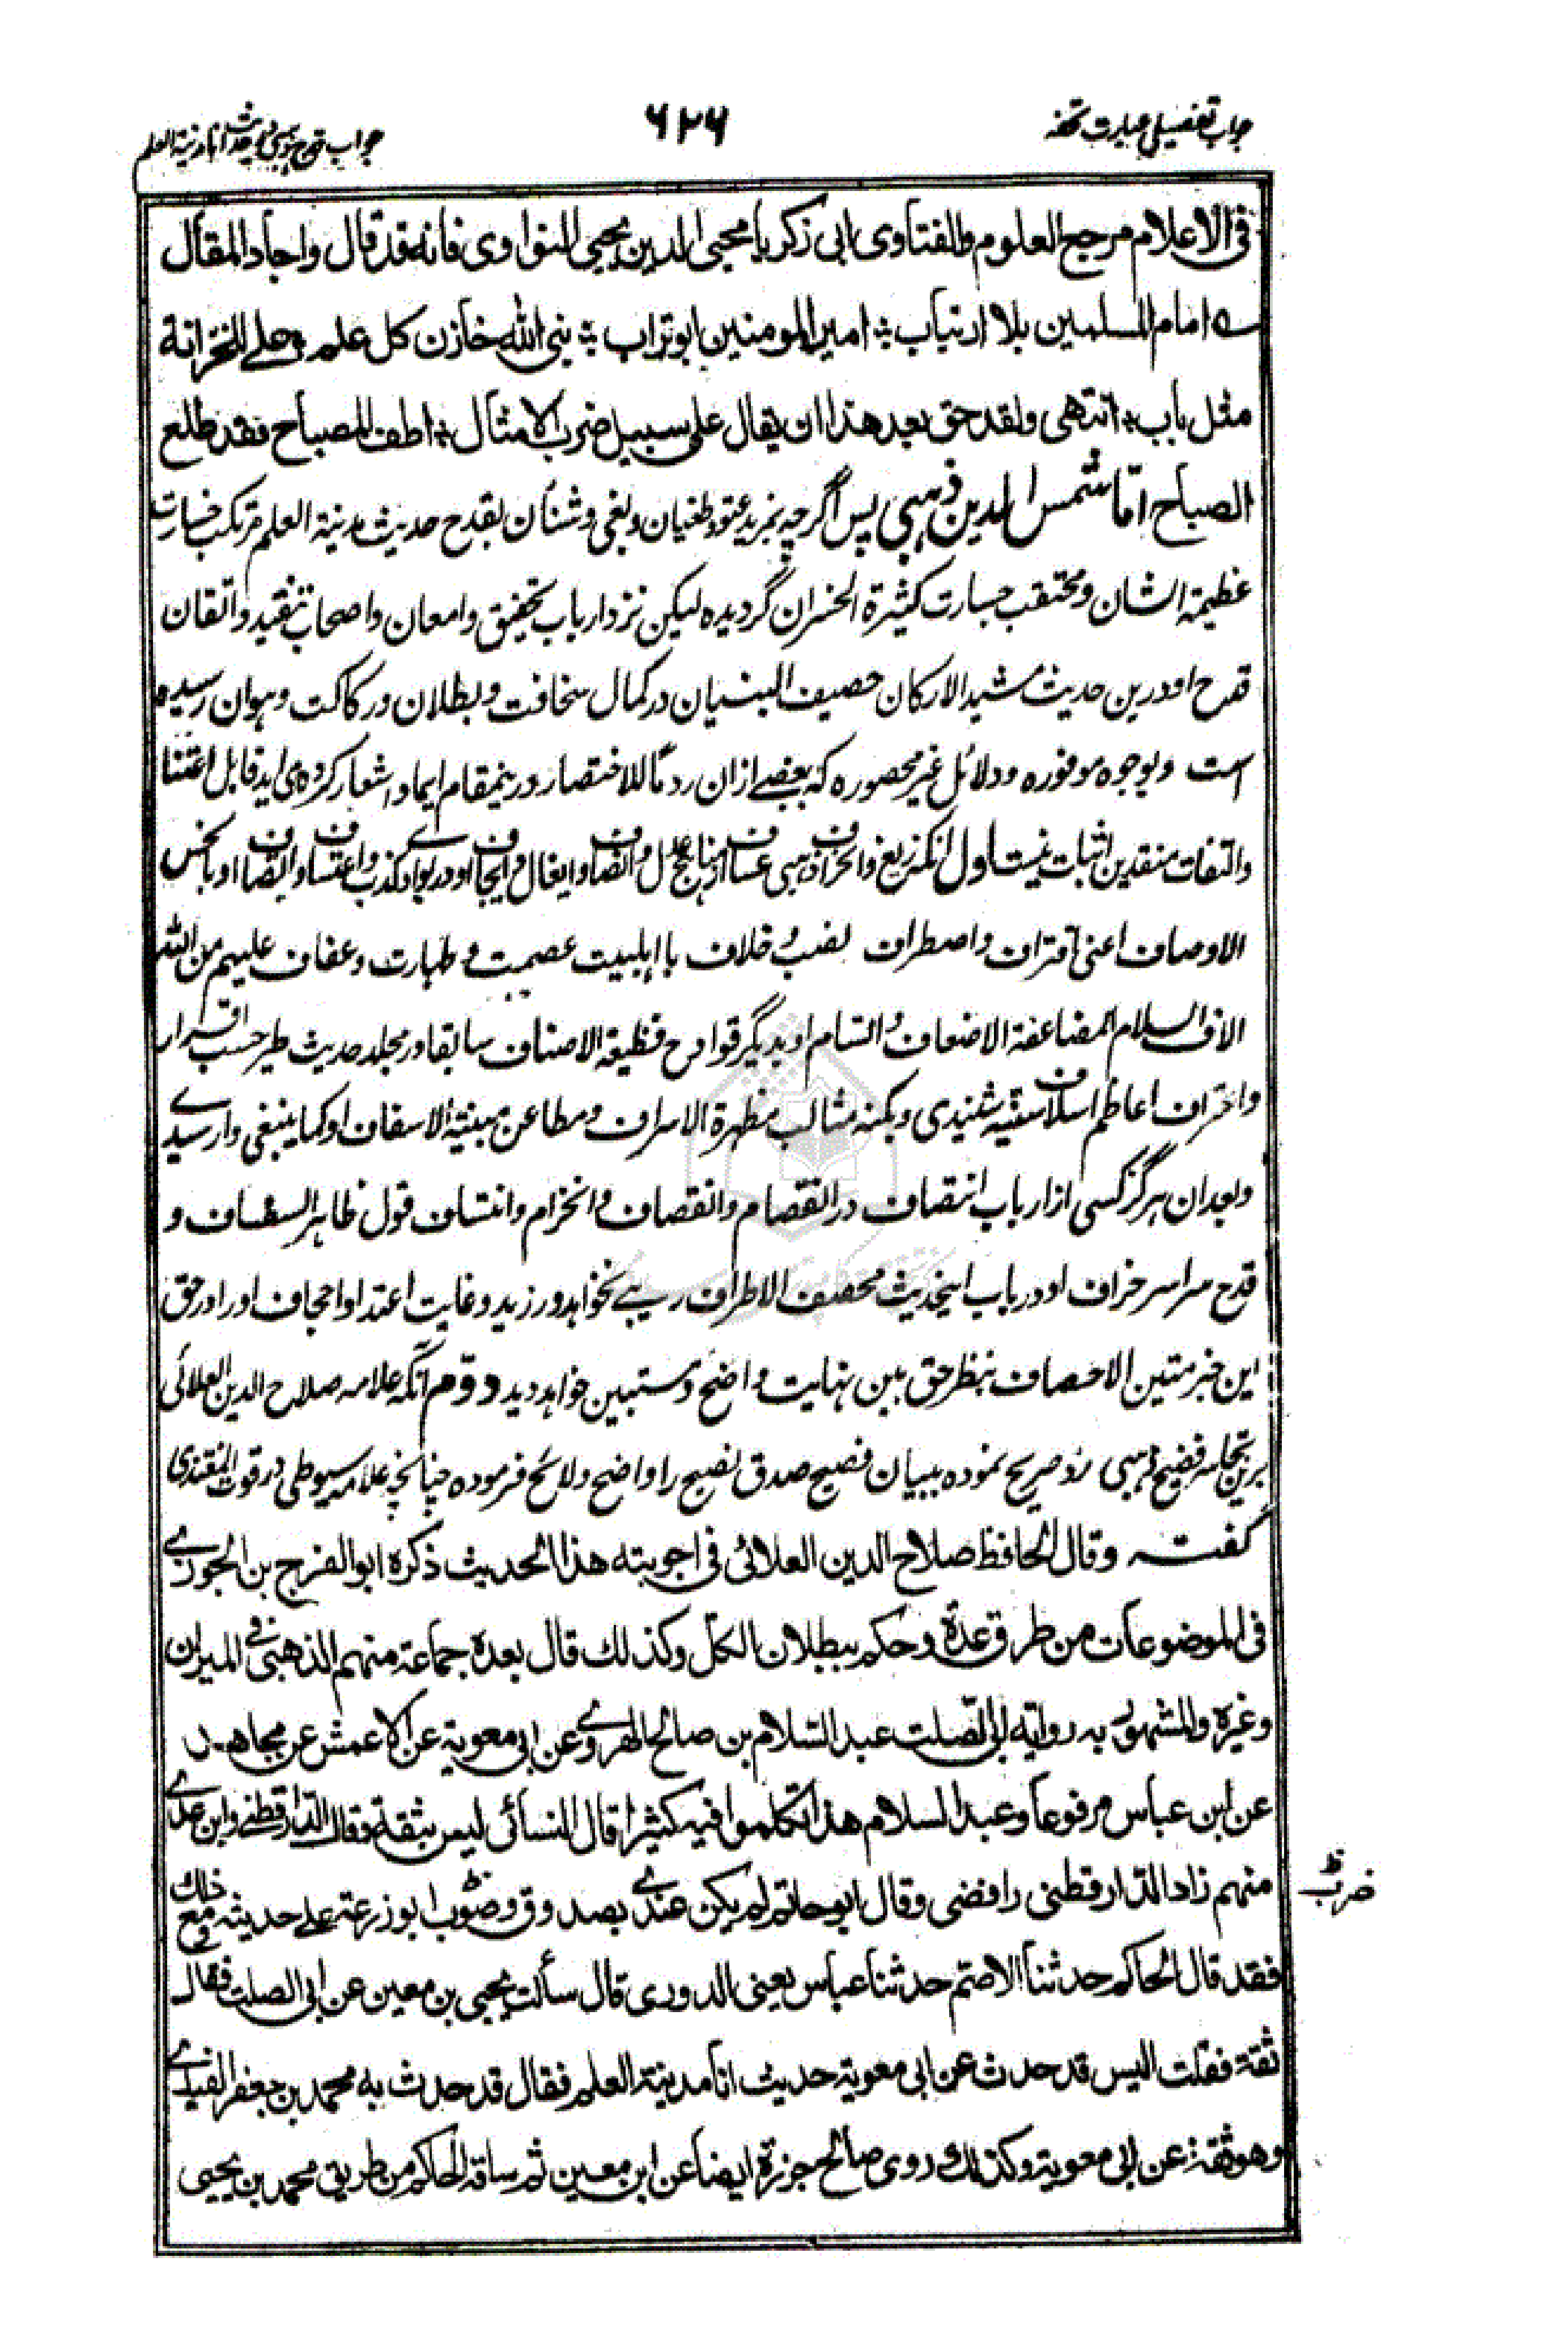 جواب تفصیلی عبارت تحفه
۶۲۶
جواب قدح ذهبی در حدیث انا مدینة العلم
فی الاعلام مرجح العلوم والفتاوی ابی زکریا محیی الدین یحیی النواوی فانه قد قال واجاد المقال
امام المسلمین بلا ارتیاب ؞ امیر المومنین ابو تراب ؞ نبی الله خازن کل علم ؞ علی للخزانة
مثل باب ؞ انتهی ولقد حق بعد هذا ان یقال علی سبیل ضرب الامثال ؞ اطف المصباح فقد طلع
الصباح امّا شمس الدین ذهبی پس اگرچه بمزید عتو و طغیان و بغی و شنأن بقدح حدیث مدینة العلم مرتکب خسارت
عظیمة الشان و محتقب جسارت کثیرة الخسران گردیده لیکن نزد ارباب تحقیق و امعان و اصحاب تنقید و اتقان
قدح او درین حدیث مشید الارکان حصیف البنیان در کمال سخافت و بطلان و رکاکت و هوان رسیده
است و بوجوه موفوره و دلائل غیر محصوره که بعضے ازان روما للاختصار درینمقام ایماد اشعار کرده می اید قابل اعتنا
والتفات منقدین اثبات نیست اول انکه زیغ و انحراف ذهبی و اعتساف از مناهج عدل و انصاف و ایغال و ایجاف او در بوادی کذب و اعتساف و اتصاف او باخس
الاوصاف اعنی اقتران و اصطراف نصب و خلاف با اهلبیت عصمت و طهارت و عفاف علیهم من الله
الاف السلام المضاعفة الاضعاف و اتسام او بدیگر قوادح فظیعة الاصناف سابقا در مجلد حدیث طیر حسب اقرار
واعتراف اعاظم اسلاف سنیه شنیدی و بکنه مثالب مظهرة الاسراف و مطاعن مبنیة الاسفاف او کما ینبغی وارسیدے
و بعد ان هرگز کسی از ارباب انتصاف در انفصام و انقصاف و انخرام و انتساف قول ظاهر السفساف و
قدح سراسر خراف او در باب اینحدیث محصف الاطراف ریبے نخواهد ورزید و غایت اعتدا و اجحاف او را در حق
این خبر متین الاحصاف بنظر حق بین نهایت واضح و مستبین خواهد دید دوّم آنکه علامه صلاح الدین العلائی
برین تجاسر فضیح ذهبی رد صریح نموده ببیان فصیح صدق نصیح را واضح ولائح فرموده چنانچه علامه سیوطی در قوت المغتذی
گفته وقال الحافظ صلاح الدین العلائی فی اجوبته هذا الحدیث ذکره ابو الفرج بن الجوزے
فی الموضوعات من طرق عدة وحکم ببطلان الکل وکذلك قال بعده جماعة منهم الذهبی فی المیزان
وغیره والمشهور به روایه ابی الصلت عبد السّلام بن صالح الهروے عن ابی معویة عن الاعمش عن مجاهد
عن ابن عباس مرفوعاً وعبد السلام هذا تکلموا فیه کثیرا قال النسائی لیس بثقة وقال الدّارقطنی وابن عدے
متهم زاد الدّارقطنی رافضی وقال ابو حاتم لم یکن عندے بصدوق وضرب ابو زرعة علی حدیثه ومع ذلك
ضرب ظ
فقد قال الحاکم حدثنا الاصمّ حدثنا عباس یعنی الدوری قال سألت یحیی بن معین عن ابی الصلت فقال
ثقة فقلت الیس قد حدث عن ابی معویة حدیث انا مدینة العلم فقال قد حدث به محمد بن جعفر الفیدے
وهو ثقة عن ابی معویة وکذلك روی صالح جزرة ایضاً عن ابن معین ثم ساقه الحاکم من طریق محمد بن یحیی